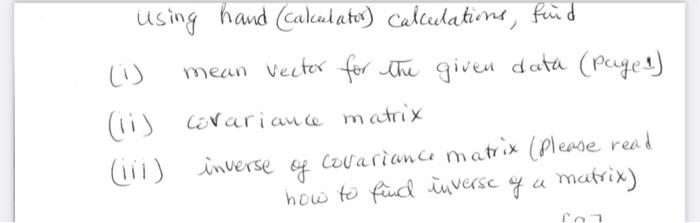 using hand (calculator) calculations, find
(i) mean vector for the given data (page 1)
(ii) covariance matrix
(iii) inverse of covariance matrix (Please read
how to find inverse of a matrix)